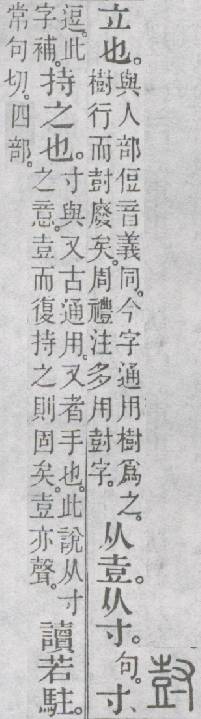 尌
立也。與人部侸音義同。今字通用樹爲之。樹行而尌廢矣。周禮注多用尌字。从壴。从寸。句。寸、
逗。此字補。持之也。寸與又古通用。又者手也。此說从寸之意。壴而復持之則固矣。壴亦聲。讀若駐。
常句切。四部。